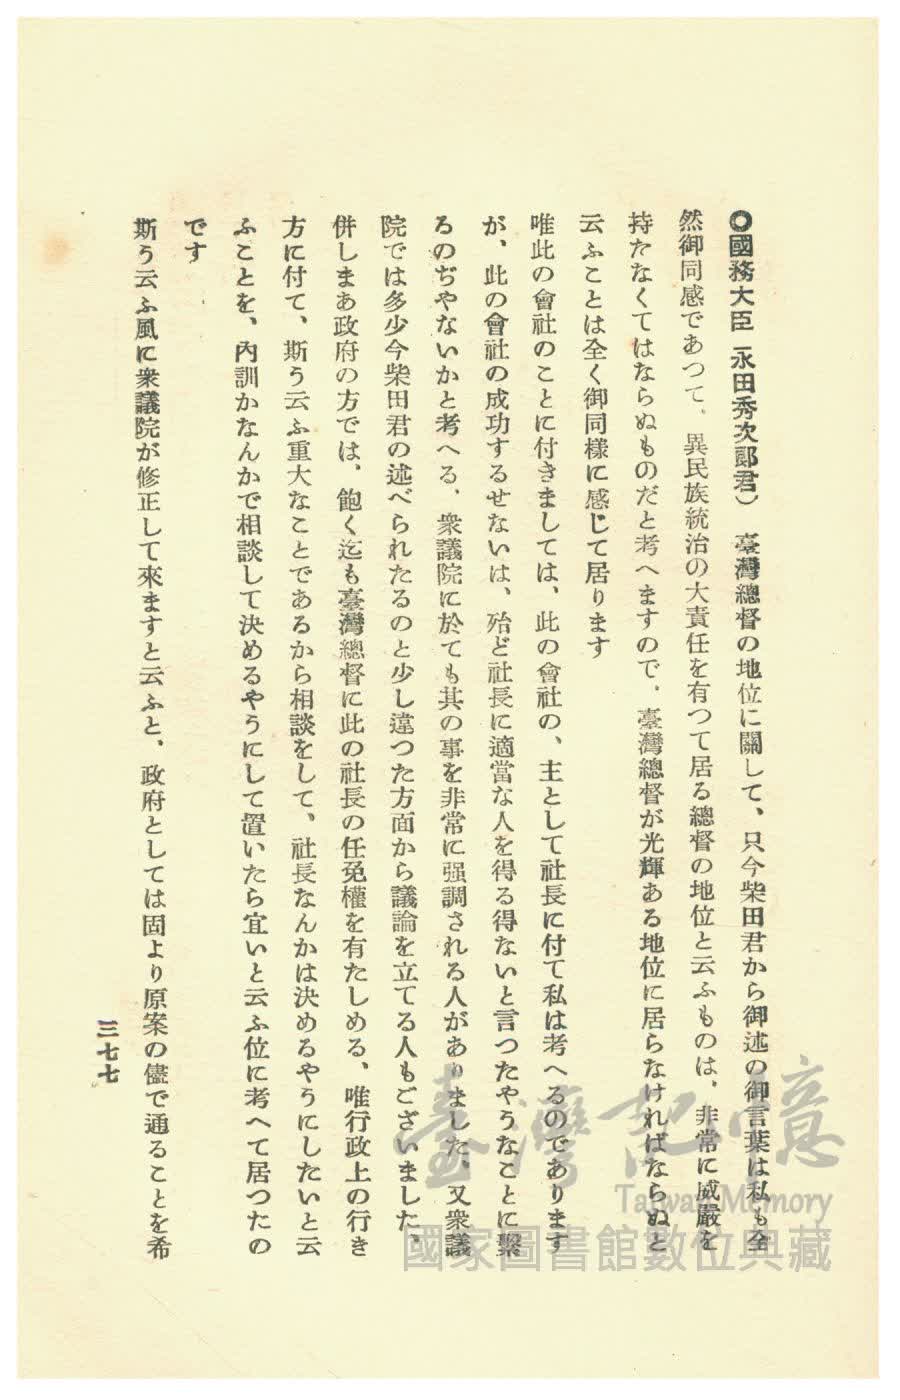 ○國務大臣（永田秀次郎君）　臺灣總督の地位に關して、只今柴田君から御述の御言葉は私も全
然御同感であつて、異民族統治の大責任を有つて居る總督の地位と云ふものは、非常に威嚴を
持たなくてはならぬものだと考へますので、臺灣總督が光輝ある地位に居らなければならぬと
云ふことは全く御同樣に感じて居ります
唯此の會社のことに付きましては、此の會社の、主として社長に付て私は考へるのであります
が、此の會社の成功するせないは、殆ど社長に適當な人を得る得ないと言つたやうなことに繫
るのぢやないかと考へる、衆議院に於ても其の事を非常に强調される人がありました、又衆議
院では多少今柴田君の述べられたるのと少し違つた方面から議論を立てる人もございました、
併しまあ政府の方では、飽く迄も臺灣總督に此の社長の任免權を有たしめる、唯行政上の行き
方に付て、斯う云ふ重大なことであるから相談をして、社長なんかは決めるやうにしたいと云
ふことを、內訓かなんかで相談して決めるやうにして置いたら宜いと云ふ位に考へて居つたの
です
斯う云ふ風に衆議院が修正して來ますと云ふと、政府としては固より原案の儘で通ることを希
三七七
臺灣記憶
Taiwan Memory
國家圖書館數位典藏